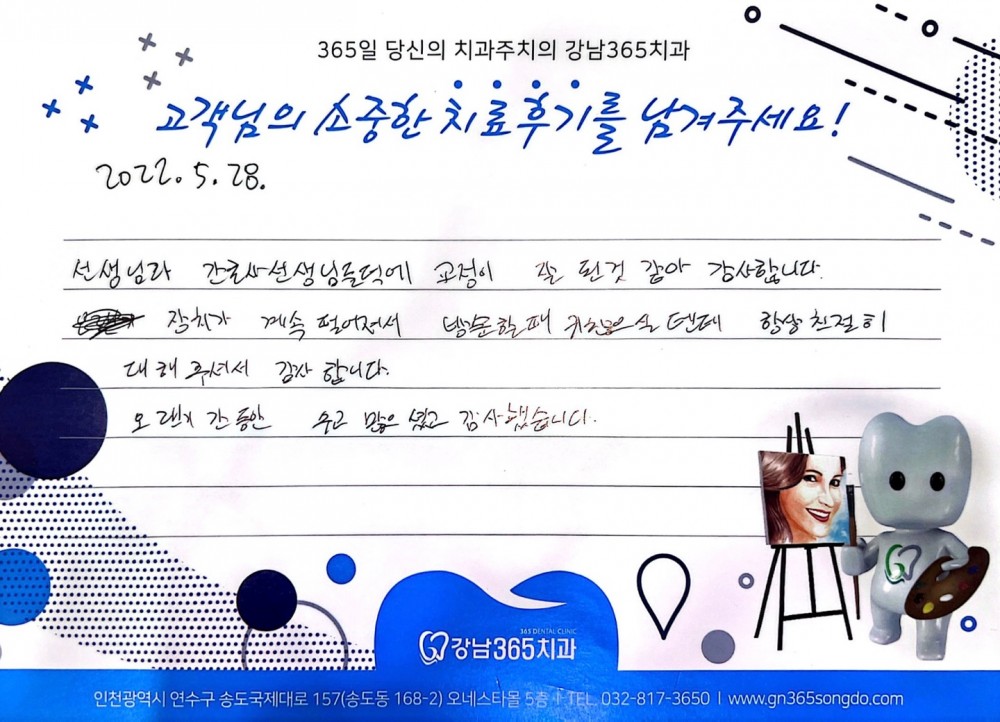 365일 당신의 치과주치의 강남365치과
고객님의 소중한 치료후기를 남겨주세요!
2022. 5. 28.
선생님과 간호사선생님들덕에 교정이 잘 된것 같아 감사합니다.
장치가 계속 떨어져서 방문할때 귀찮으실 텐데 항상 친절히
대해 주셔서 감사 합니다.
오랜기간동안 수고 많으셨고 감사했습니다.
365 DENTAL CLINIC
강남365치과
인천광역시 연수구 송도국제대로 157(송도동 168-2) 오네스타몰 5층 I TEL. 032-817-3650 I www.gn365songdo.com